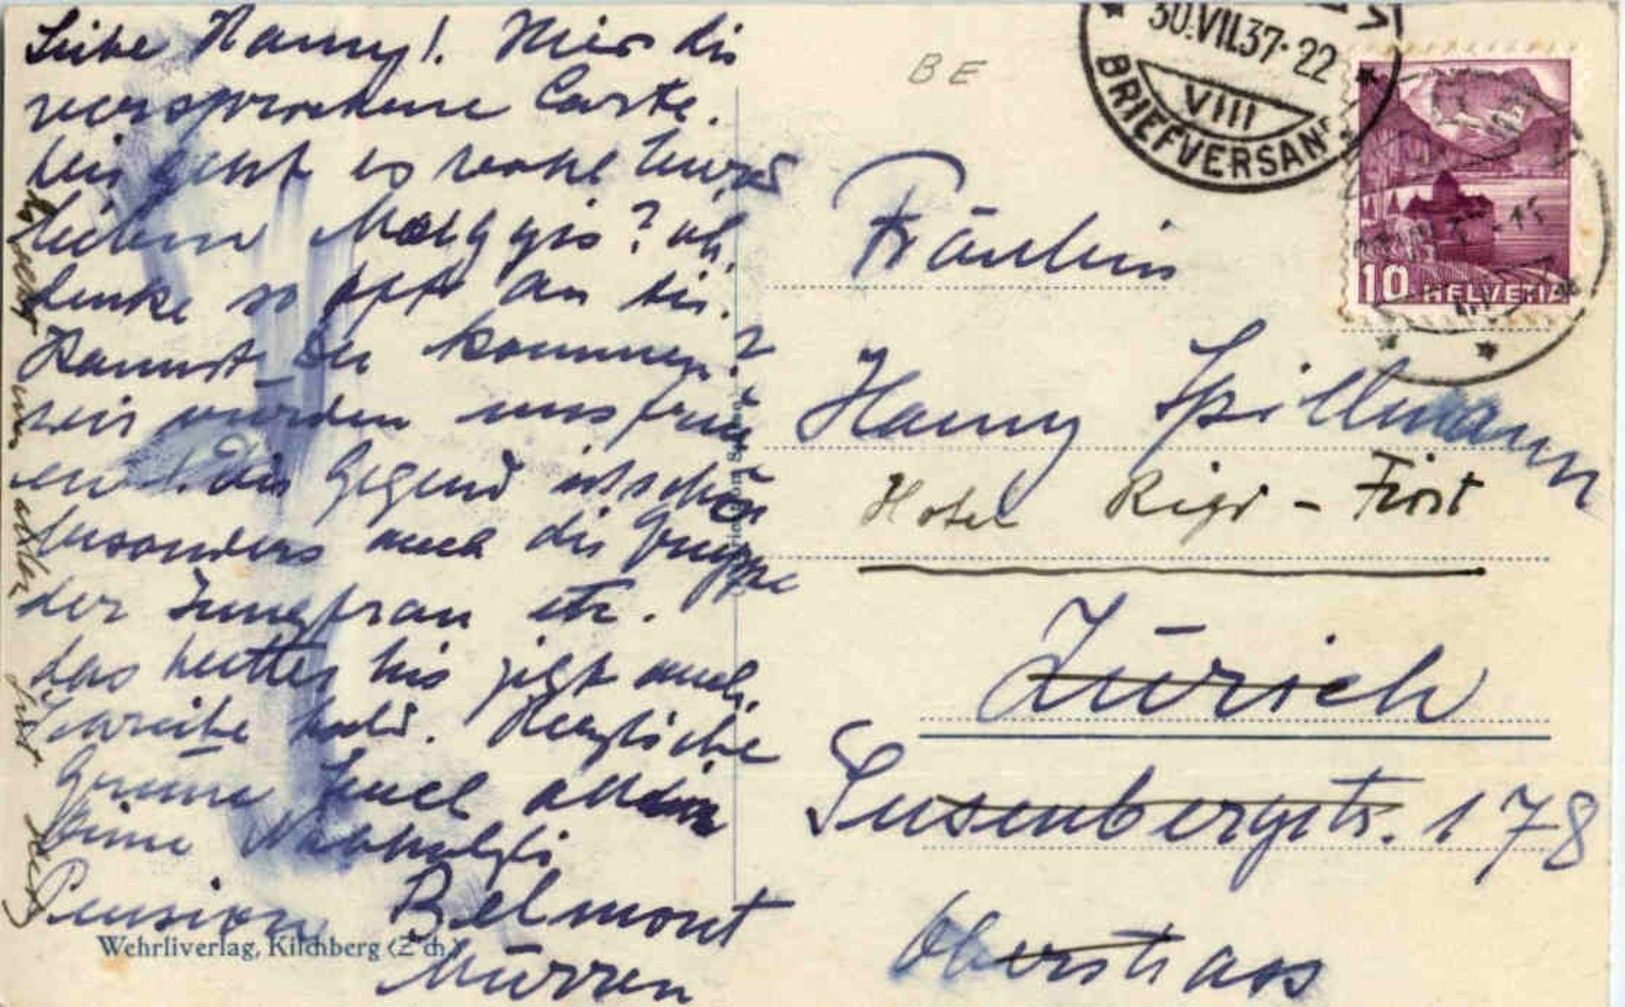 Liebe Hanny! Hier die
versprochene Carte.
wie geht es wohl Eurem
lieben ? ich
denke so oft an die.
Kannst Du kommen?
wir würden uns freu
en! die Gegend ist schön
besonders auch die Gruppe
der Jungfrau etc.
das Wetter bis jetzt auch.
Schreibe bald. Herzliche
Grüsse Euch allen
Deine
Pension Belmont
Mürren
Wehrliverlag, Kilchberg (Zch.)
BE
30.VII.37-22
VIII
BRIEFVERSAND
10 HELVETIA
Fräulein
Hanny Spillmann
Hotel Rigi - First
Zürich
Susenbergstr. 178
Oberstrass